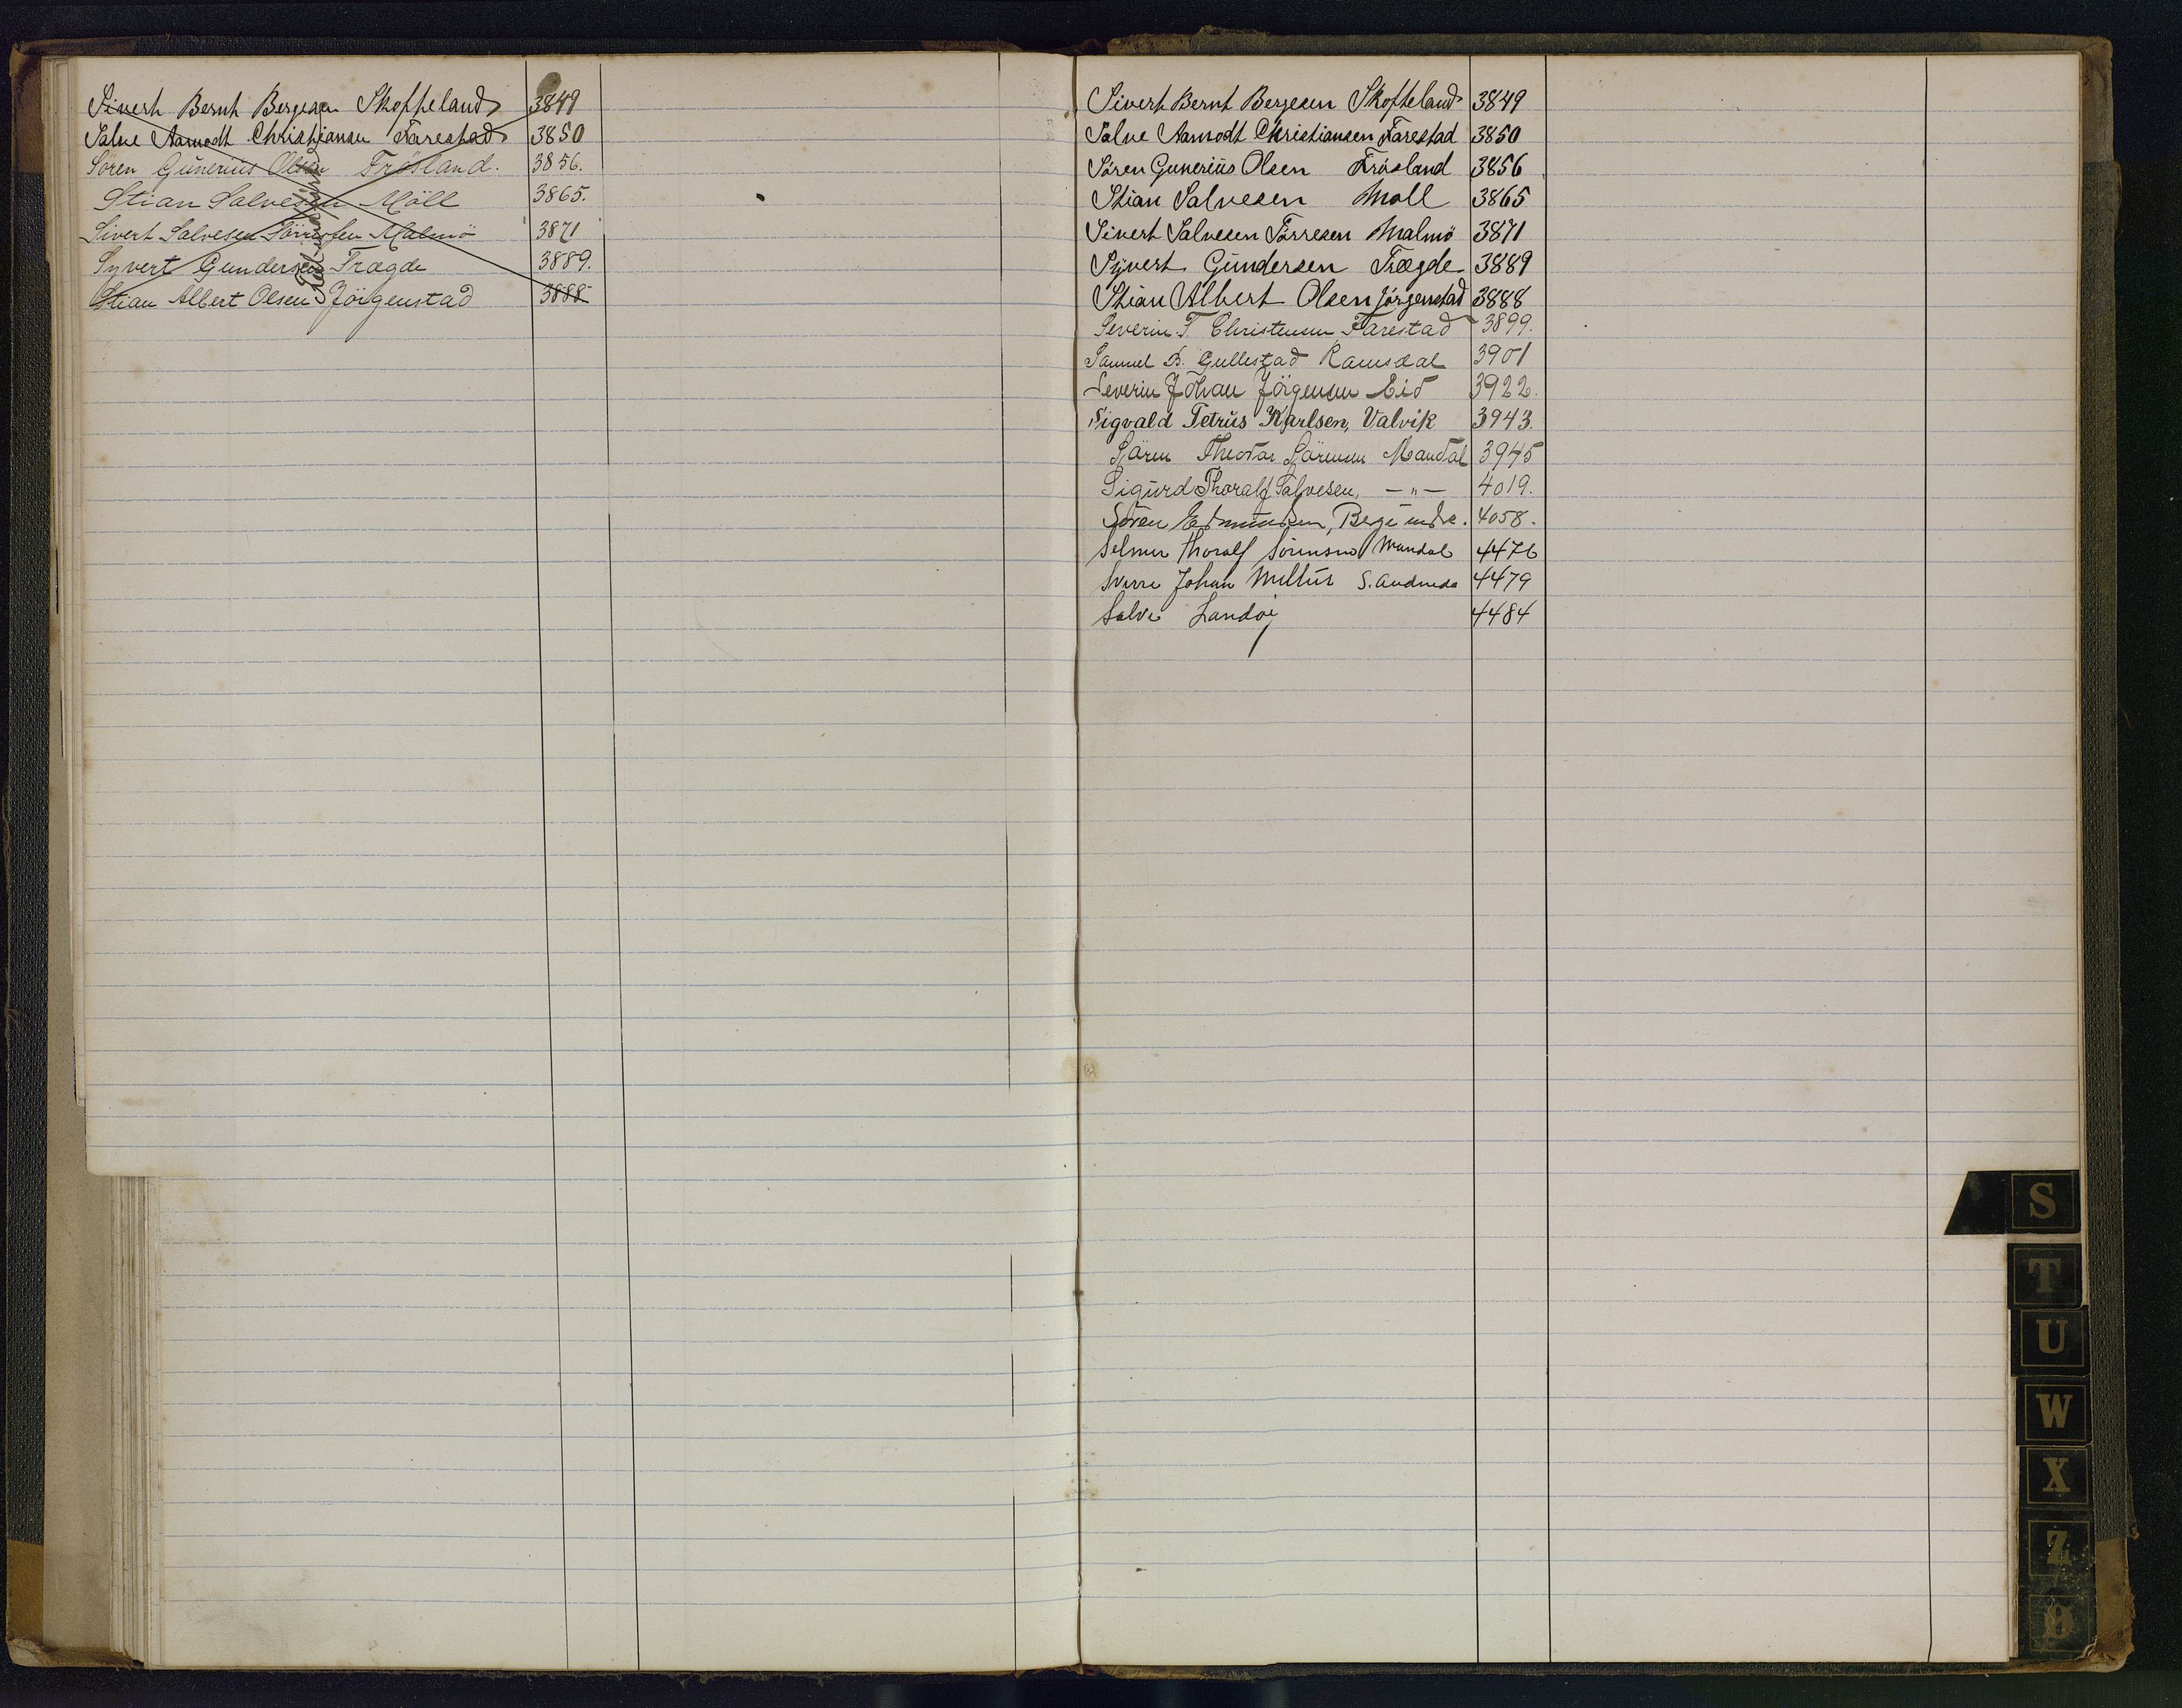 Sivert Bernt Bergesen Skofteland 3849
Salve Aamodt Christiansen Farestad 3850
Sören Gunerius Olsen Frösland. 3856.
Stian Salvesen Möll 3865.
Sivert Salvesen Törresen Malmö 3871
Syvert Gundersen Trægde 3889.
Stian Albert Olsen Jörgenstad 3888
Sivert Bernt Bergesen Skofteland 3849
Salve Aamodt Christiansen Farestad 3850
Sören Gunerius Olsen Frösland 3856
Stian Salvesen Moll 3865
Sivert Salvesen Törresen Malmö 3871
Syvert Gundersen Trægde 3889
Stian Albert Olsen Jörgenstad 3888
Severin T. Christensen Farestad 3899.
Samuel B. Gullestad Ramsdal 3901
Severin Johan Jörgensen Eid 3922.
Sigvald Petrus Karlsen, Valvik 3943.
Sören Theodor Sörensen Mandal 3945
Sigurd Thoralf Salvesen, —"— 4019.
Sören Edmundsen, Berge indre. 4058.
Selmer Thoralf Sörensen Mandal 4476
Sverre Johan S. Audneda 4479
Salve Landöy 4484
S
T
U
W
X
Z
Ø